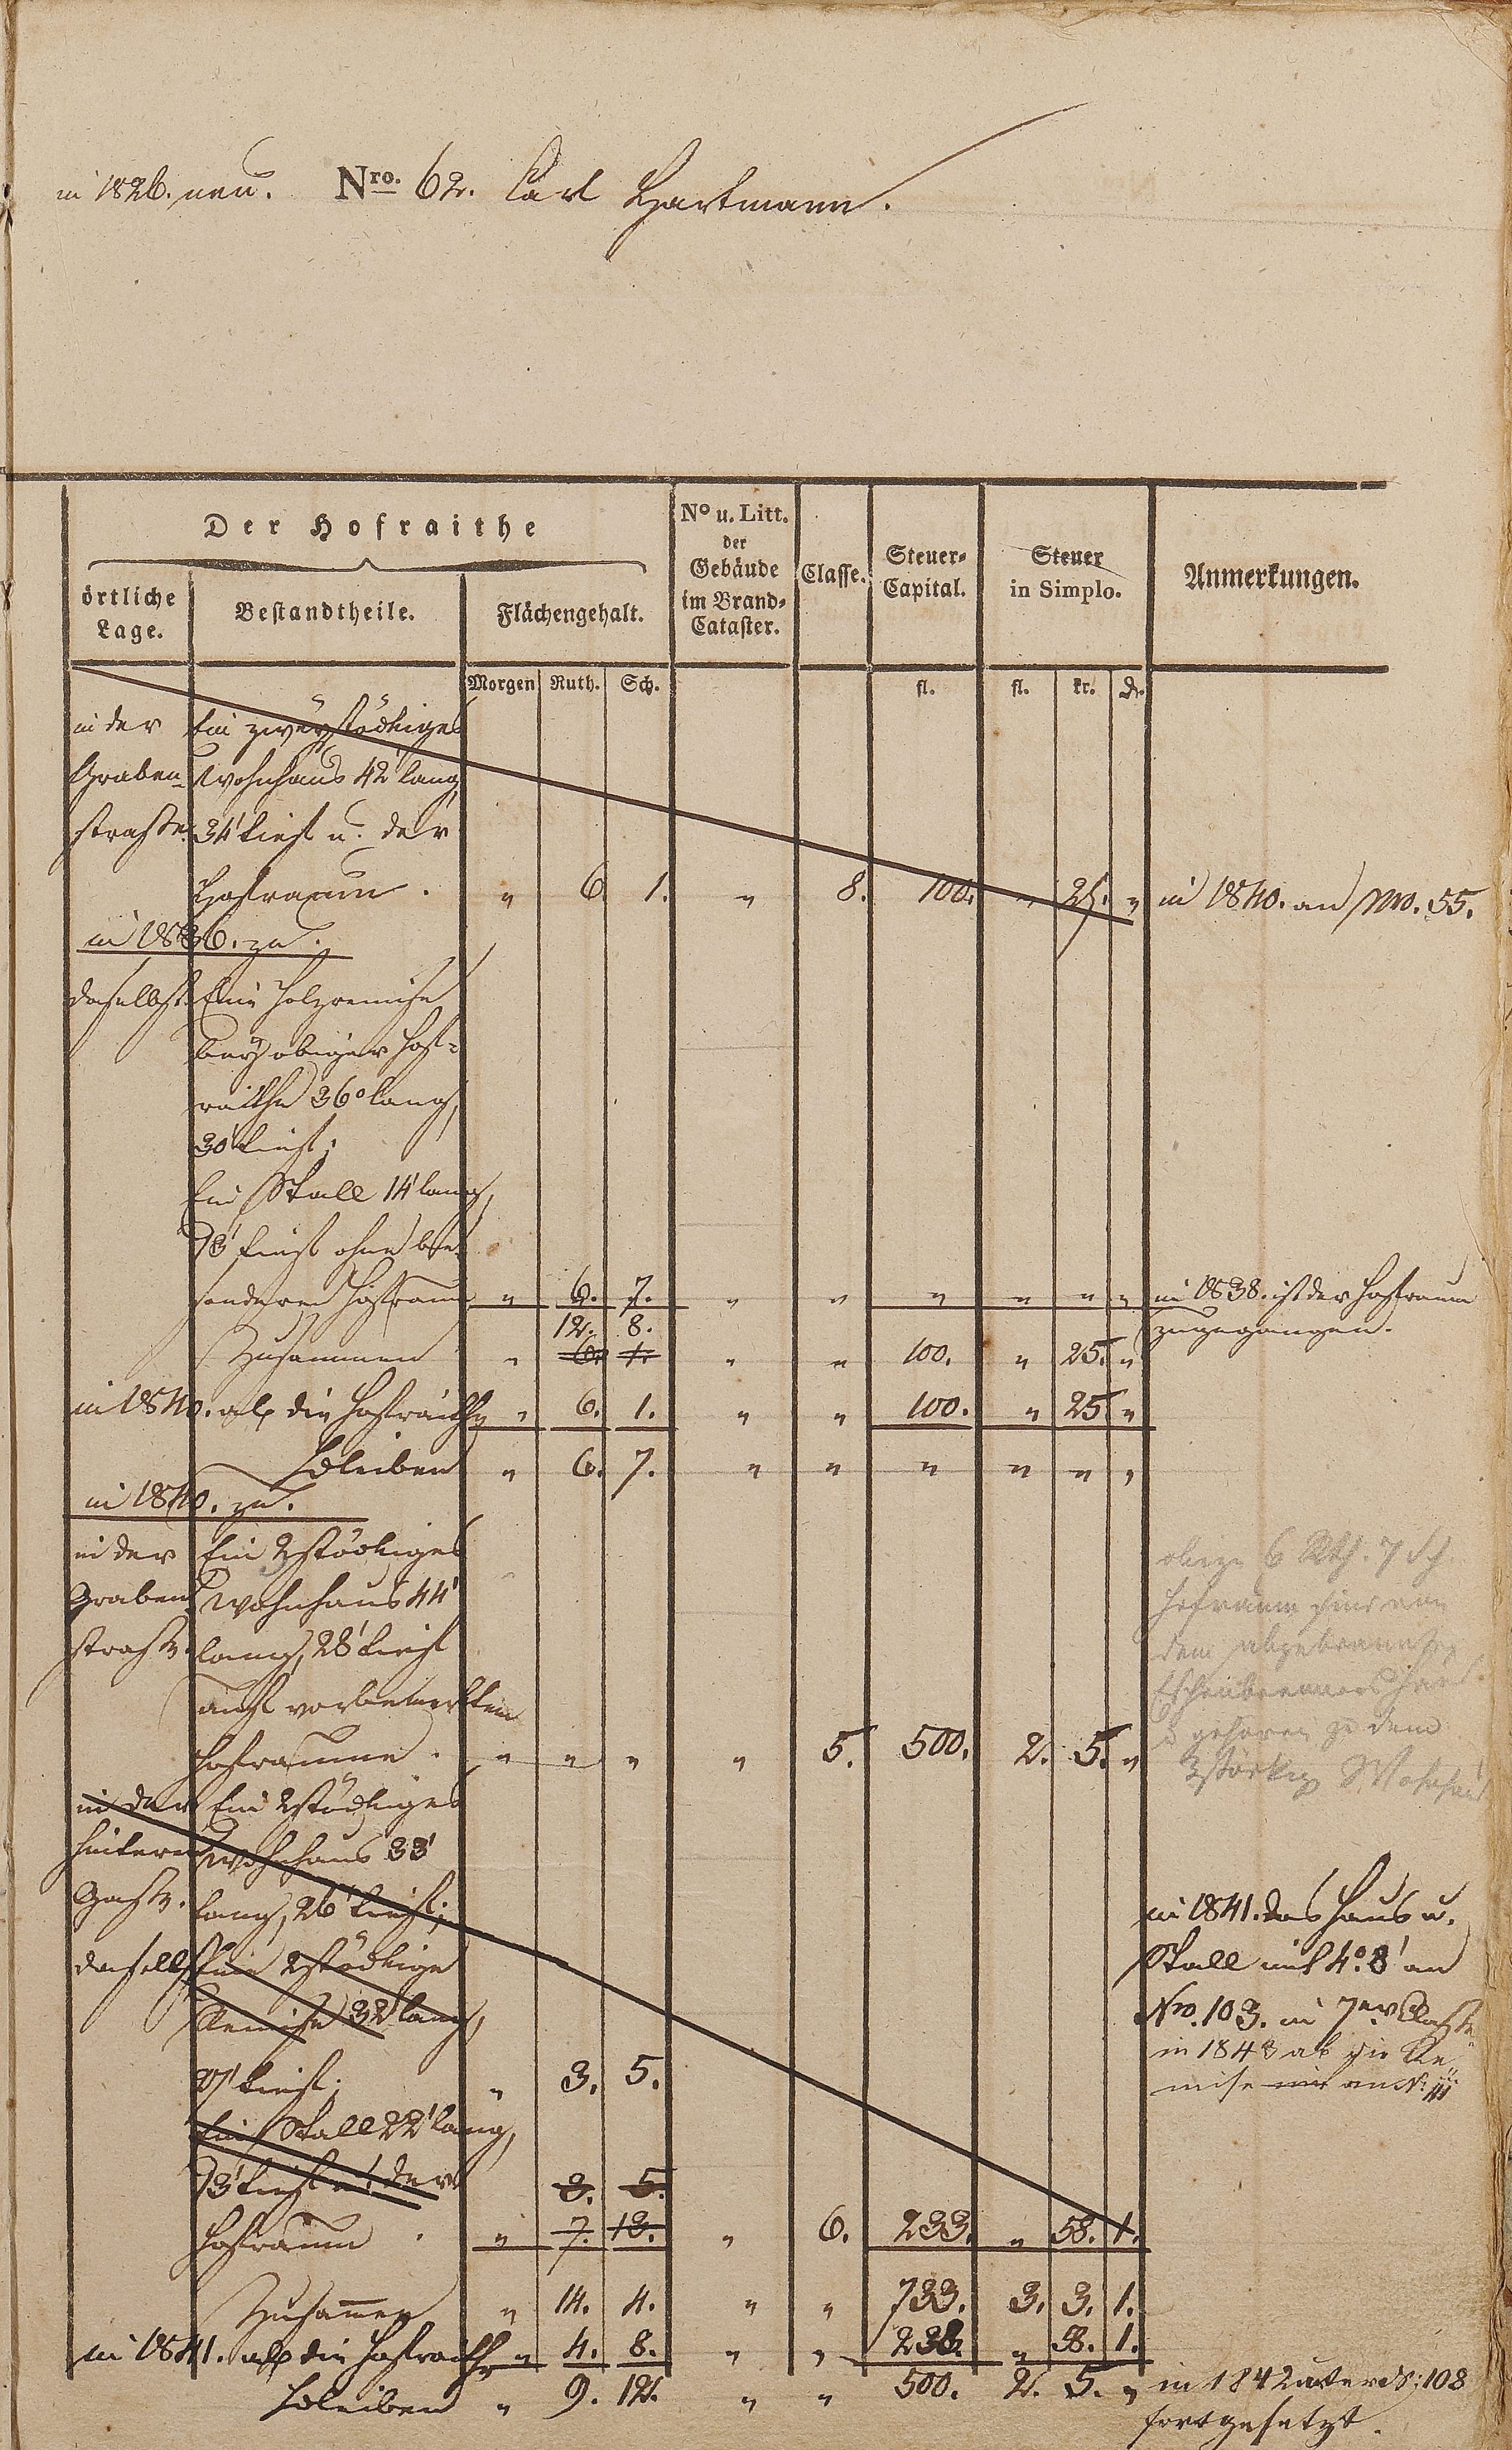 in 1826. neu. Nro. 62. Carl Hartmann.
Der Hofraithe
örtliche Lage.
Bestandtheile.
Flächengehalt.
No u. Litt. der Gebäude im Brand-Cataster.
Classe.
Steuer-Capital.
Steuer in Simplo.
Anmerkungen.
Morgen Ruth. Sch. fl. fl. kr. d.
in der Ein zweystöckiges
Graben- Wohnhaus 42' lang,
straße. 34' tief u. der
Hofraum. " 6. 1. " 8. 100. " 25. " in 1840. an Nro. 55.
in 1836. zu.
daselbst. Eine Holzremise
bey obiger Hof-
raithe 36° lang,
30' tief;
Ein Stall 14' lang,
13' tief ohne be-
sonderen Hofraum " 6. 7. " " " " " " in 1838. ist der Hofraum
12. 8. zugegangen.
Zusammen " 6. 1. " " 100. " 25. "
in 1840. ab die Hofraithe " 6. 1. " " 100. " 25 "
Bleiben " 6. 7. " " " " " "
in 1840. zu.
in der Ein 2stöckiges obige 6 Rth. 7 Sch.
Graben- Wohnhaus 44' Hofraum sind von
straße. lang, 28' tief dem abgebrannten
auf vorbemerktem
Hofraume. " " " " 5. 500. 2. 5. " gehören zu dem
2stöckig Wohnhaus
in der Ein 2stöckiges
hinteren Wohnhaus 33'
Gasse. lang, 26' tief; in 1841. das Haus u.
daselbst Eine 2stöckige Stall mit 4° 8' an
Remise 32' lang, Nro. 103. in 7er Classe
in 1843 ab die Re-
27' tief; " 3. 5. mise an N. 111
Ein Stall 22' lang,
13' tief u. der 3. 5.
Hofraum. " 7. 13. " 6. 233. " 58. 1.
Zusammen " 14. 4. " " 733. 3. 3. 1.
in 1841. ab die Hofraithe " 4. 8. " " 233. " 58. 1.
Bleiben " 9. 12. " " 500. 2. 5. " in 1842 unter N: 108
fortgesetzt.